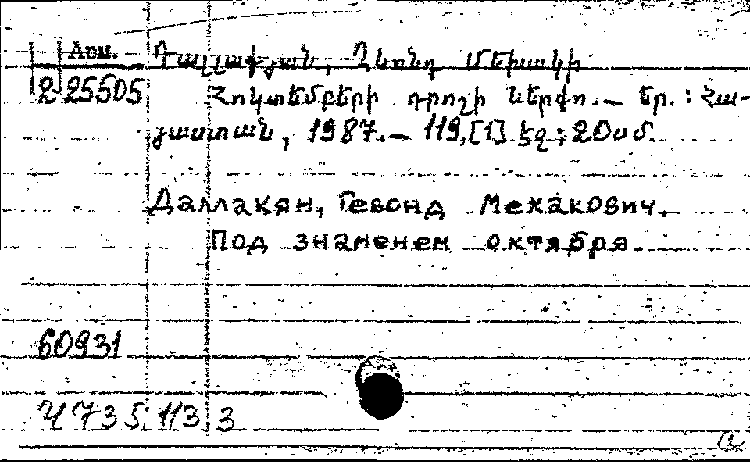 Арм. Դալլաքյան, Ղևոնդ Մեխակի
2 25505 Հոկտեմբերի դրոշի ներքո.— Եր. : Հա-
յաստան, 1987.— 119,[1] էջ ; 20սմ.
Даллакян, Гевонд Мехакович.
Под знаменем октября.
60931
4735 113 3